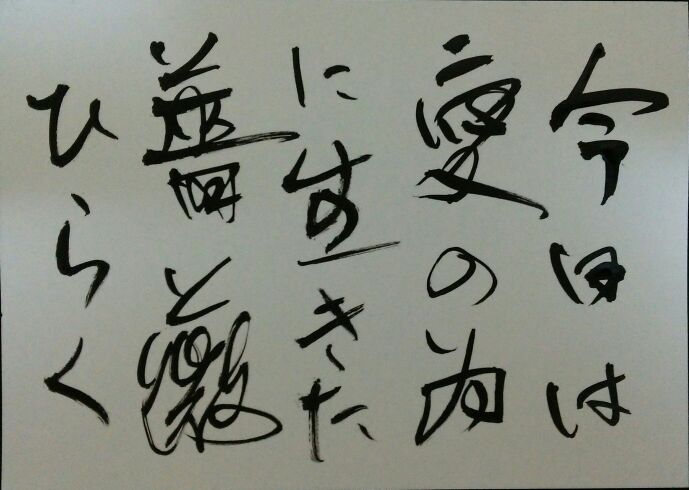 今日は
愛の為
に生きた
薔と薇
ひらく